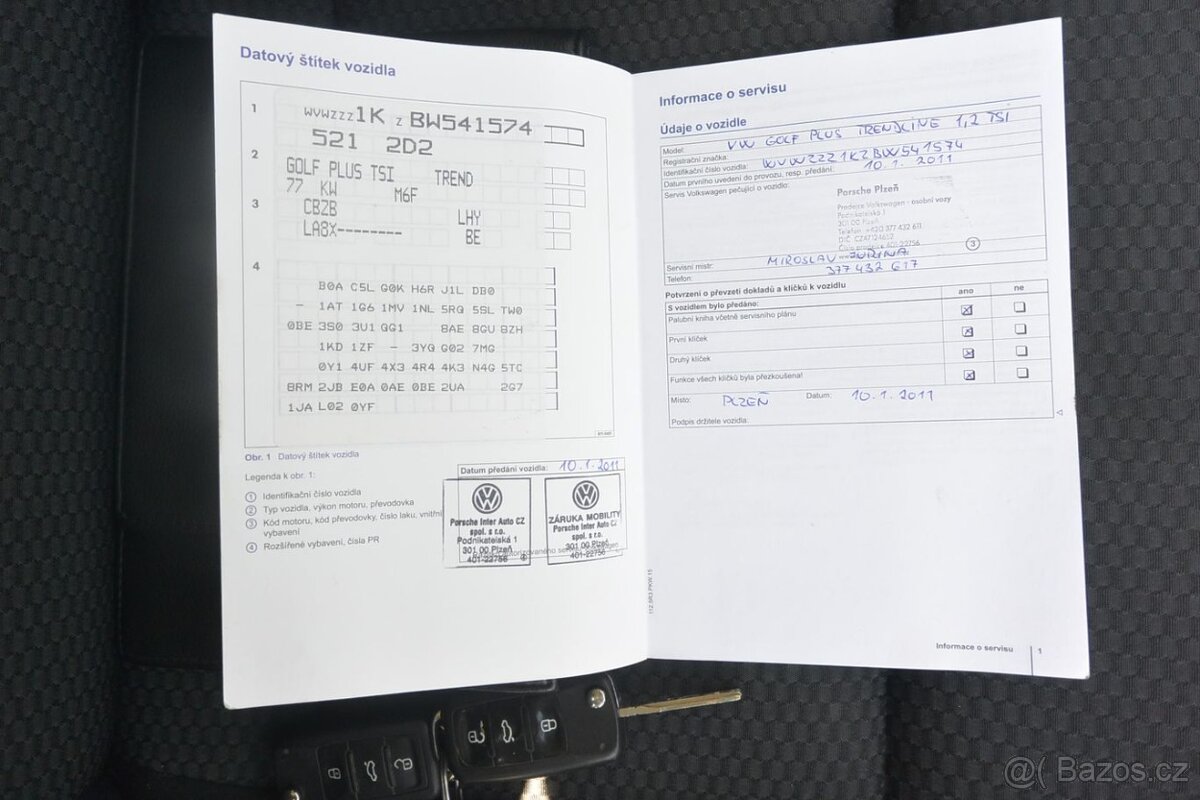 Datový štítek vozidla
1 WVWZZZ1K Z BW541574
521 2D2
2 GOLF PLUS TSI TREND
77 KW M6F
3 CBZB LHY
LA8X-------- BE
4
B0A C5L G0K H6R J1L DB0
- 1AT 1G6 1MV 1NL 5RQ 5SL TW0
0BE 3S0 3U1 QG1 8AE 8GU 8ZH
1KD 1ZF - 3YG G02 7MG
0Y1 4UF 4X3 4R4 4K3 N4G 5TC
8RM 2JB E0A 0AE 0BE 2UA 2G7
1JA L02 0YF
Obr. 1 Datový štítek vozidla
Legenda k obr. 1:
1 Identifikační číslo vozidla
2 Typ vozidla, výkon motoru, převodovka
3 Kód motoru, kód převodovky, číslo laku, vnitřní
vybavení
4 Rozšířené vybavení, čísla PR
Datum předání vozidla: 10.1.2011
Porsche Inter Auto CZ
spol. s r.o.
Podnikatelská 1
301 00 Plzeň
401-22756
ZÁRUKA MOBILITY
Porsche Inter Auto CZ
spol. s r.o.
301 00 Plzeň
401-22756
Informace o servisu
Údaje o vozidle
Model: VW GOLF PLUS TRENDLINE 1,2 TSI
Registrační značka:
Identifikační číslo vozidla: WVWZZZ1KZBW541574
Datum prvního uvedení do provozu, resp. předání: 10.1.2011
Servis Volkswagen pečující o vozidlo:
Porsche Plzeň
Prodejce Volkswagen - osobní vozy
Podnikatelská 1
301 00 Plzeň
Telefon: +420 377 432 611
DIČ: CZ47124652
Číslo prodejce 401-22756
3
Servisní mistr: MIROSLAV
Telefon: 377 432 617
Potvrzení o převzetí dokladů a klíčků k vozidlu
S vozidlem bylo předáno: ano ne
Palubní kniha včetně servisního plánu
První klíček
Druhý klíček
Funkce všech klíčků byla přezkoušena!
Místo: PLZEŇ Datum: 10.1.2011
Podpis držitele vozidla:
Informace o servisu 1
@( Bazos.cz